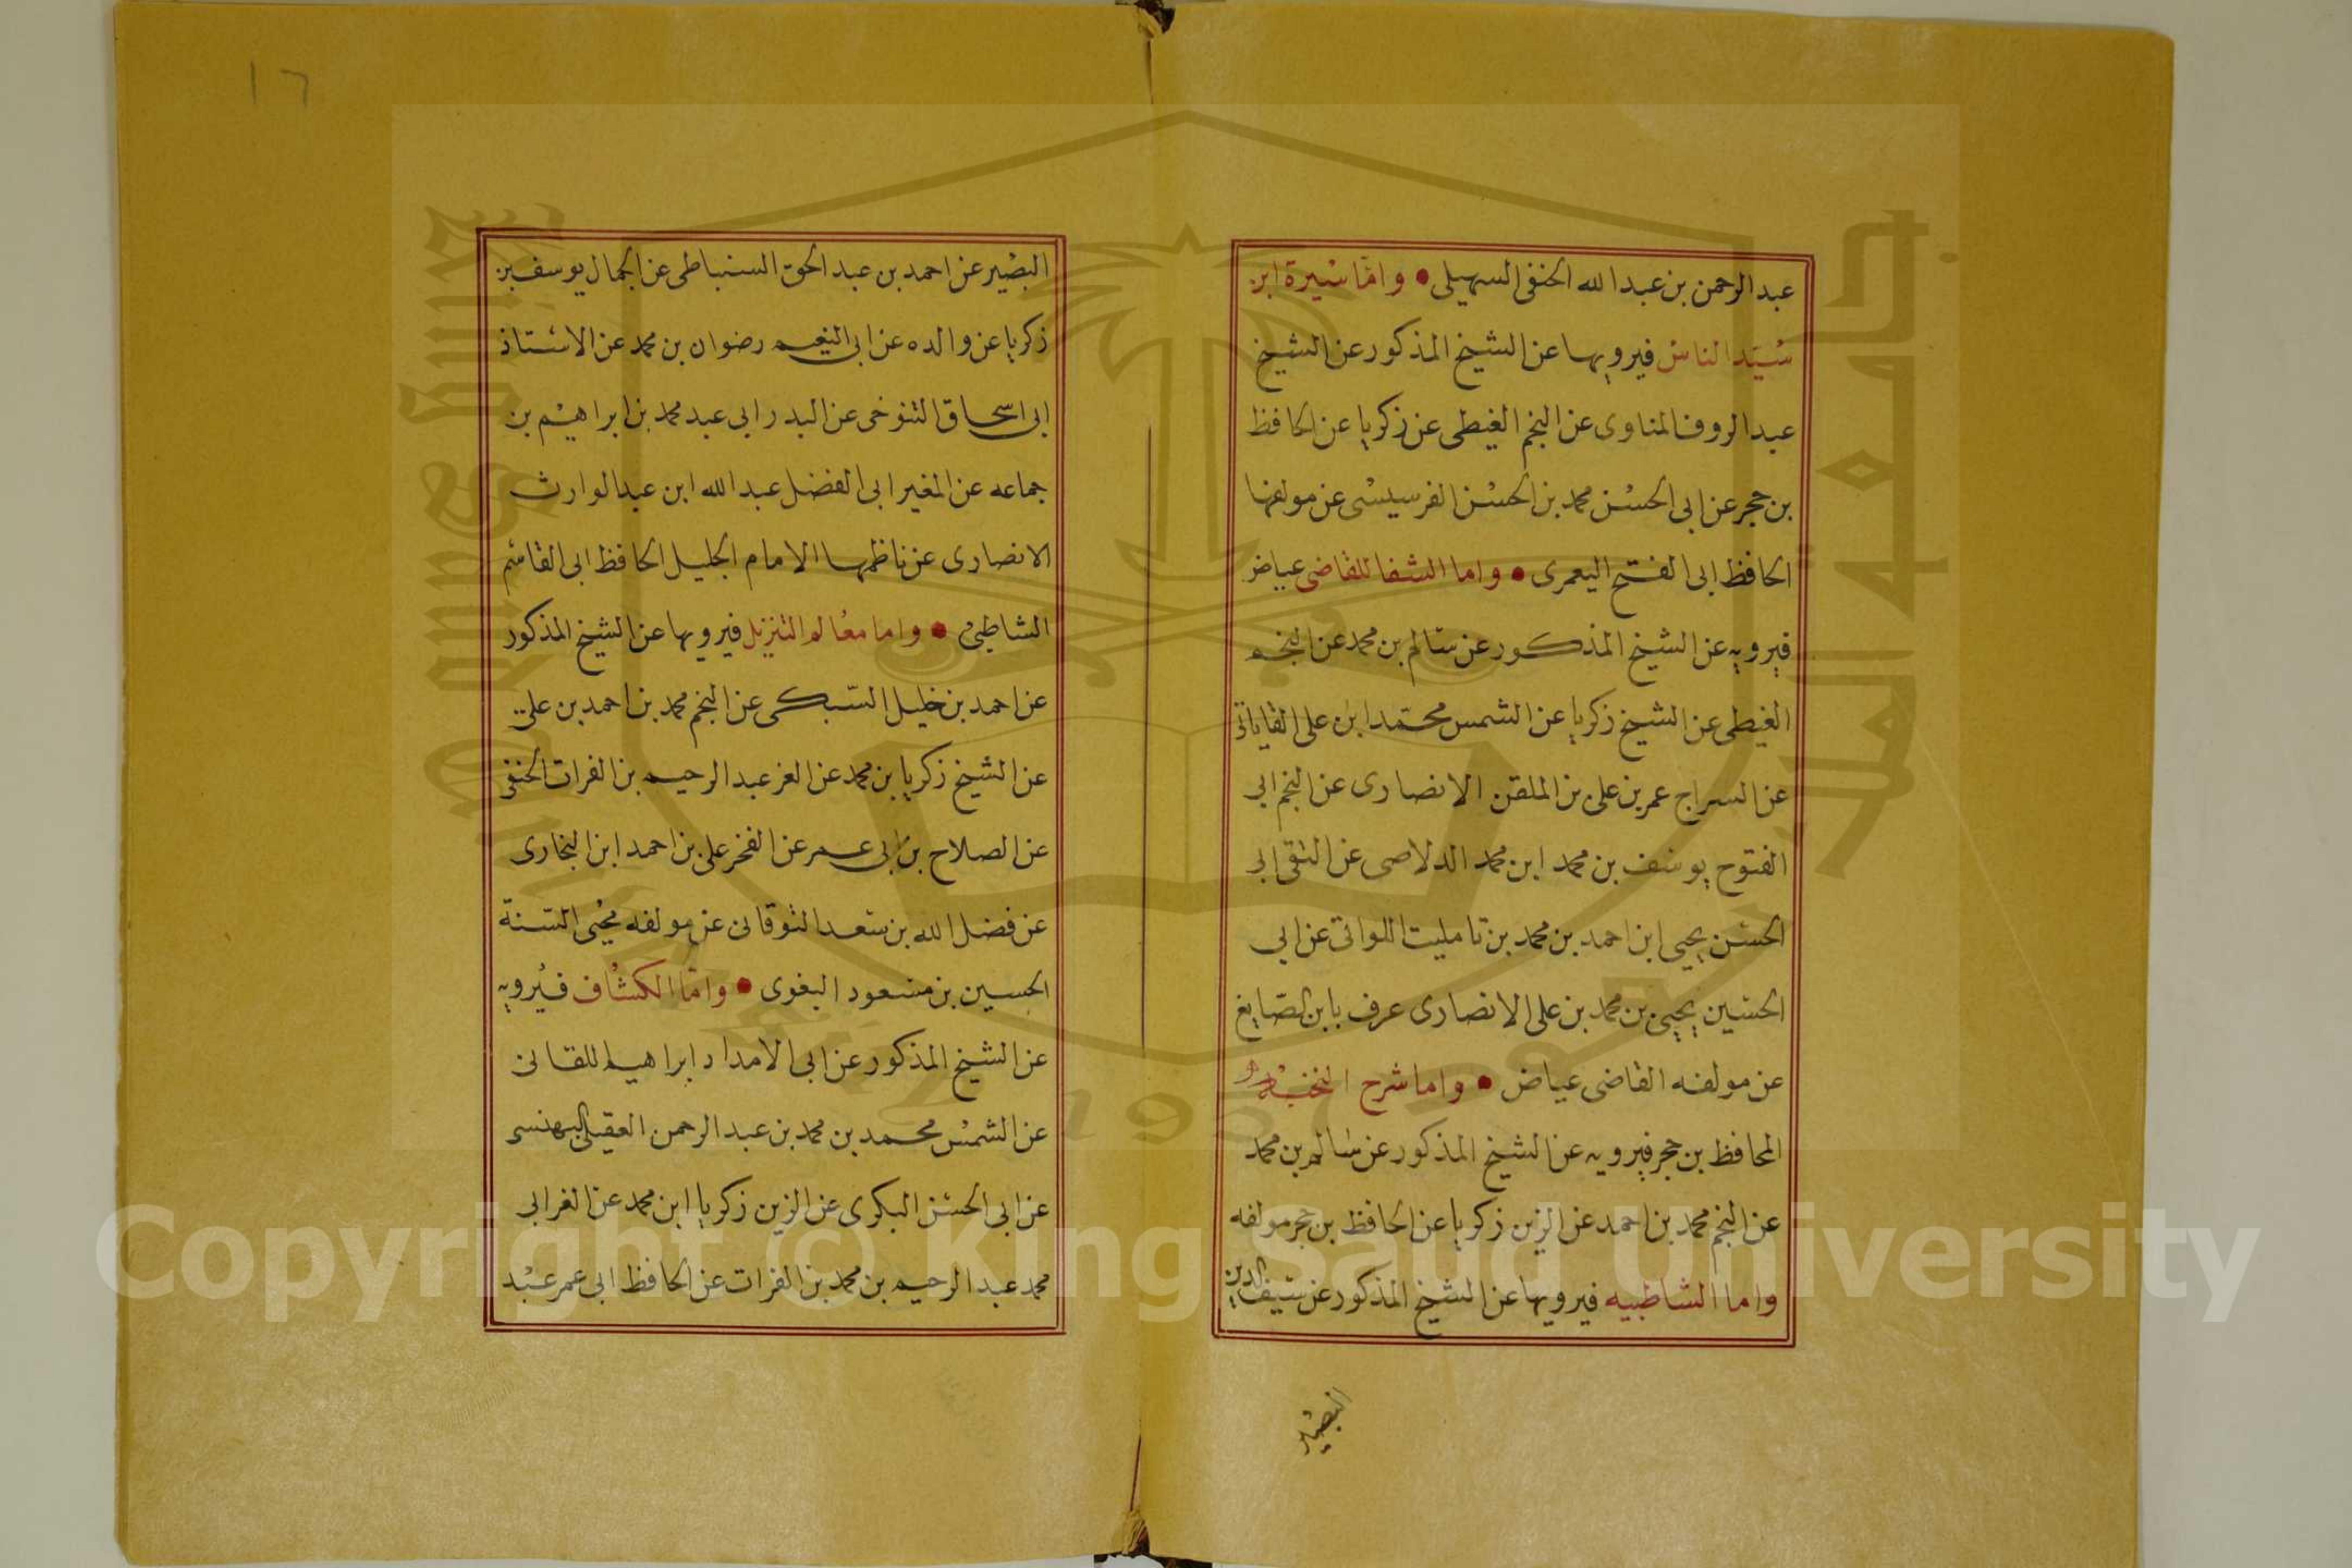 عبد الرحمن بن عبد الله الحنفى السهيلى • واما سيرة ابن
سيد الناس فيرويها عن الشيخ المذكور عن الشيخ
عبد الروف المناوى عن النجم الغيطى عن زكريا عن الحافظ
بن حجر عن ابى الحسن محمد بن الحسن الفرسيسى عن مولفها
الحافظ ابى الفتح اليعمرى • واما الشفا للقاضى عياض
فيرويه عن الشيخ المذكور عن سالم بن محمد عن النجم
الغيطى عن الشيخ زكريا عن الشمس محمد ابن على القاياتى
عن السراج عمر بن على بن الملقن الانصارى عن النجم ابى
الفتوح يوسف بن محمد ابن محمد الدلاصى عن التقى ابى
الحسن يحيى ابن احمد بن محمد بن تامليت اللواتى عن ابى
الحسين يحيى بن محمد بن على الانصارى عرف بابن الصايغ
عن مولفه القاضى عياض • واما شرح النخبه
المحافظ بن حجر فيرويه عن الشيخ المذكور عن سالم بن محمد
عن النجم محمد بن احمد عن الزين زكريا عن الحافظ بن حجر مولفه
واما الشاطبيه فيرويها عن الشيخ المذكور عن سيف الدين
البصير
١٦
البصير عن احمد بن عبد الحق السنباطى عن الجمال يوسف بن
زكريا عن والده عن ابى النعيم رضوان بن محمد عن الاستاذ
ابى اسحاق التنوخى عن البدر ابى عبد محمد بن ابراهيم بن
جماعه عن المغير ابى الفضل عبد الله ابن عبد الوارث
الانصارى عن ناظمها الامام الجليل الحافظ ابى القاسم
الشاطبى • واما معالم التنزيل فيرويها عن الشيخ المذكور
عن احمد بن خليل السبكى عن النجم محمد بن احمد بن على
عن الشيخ زكريا بن محمد عن العز عبد الرحيم بن الفرات الحنفى
عن الصلاح بن ابى عمر عن الفخر على بن احمد ابن البخارى
عن فضل الله بن سعد النوقانى عن مولفه محيى السنة
الحسين بن مسعود البغوى • واما الكشاف فيرويه
عن الشيخ المذكور عن ابى الامداد ابراهيم اللقانى
عن الشمس محمد بن محمد بن عبد الرحمن العقيلى البهنسى
عن ابى الحسن البكرى عن الزين زكريا ابن محمد عن العز ابى
محمد عبد الرحيم بن محمد بن الفرات عن الحافظ ابى عمر عبد
Copyright © King Saud University